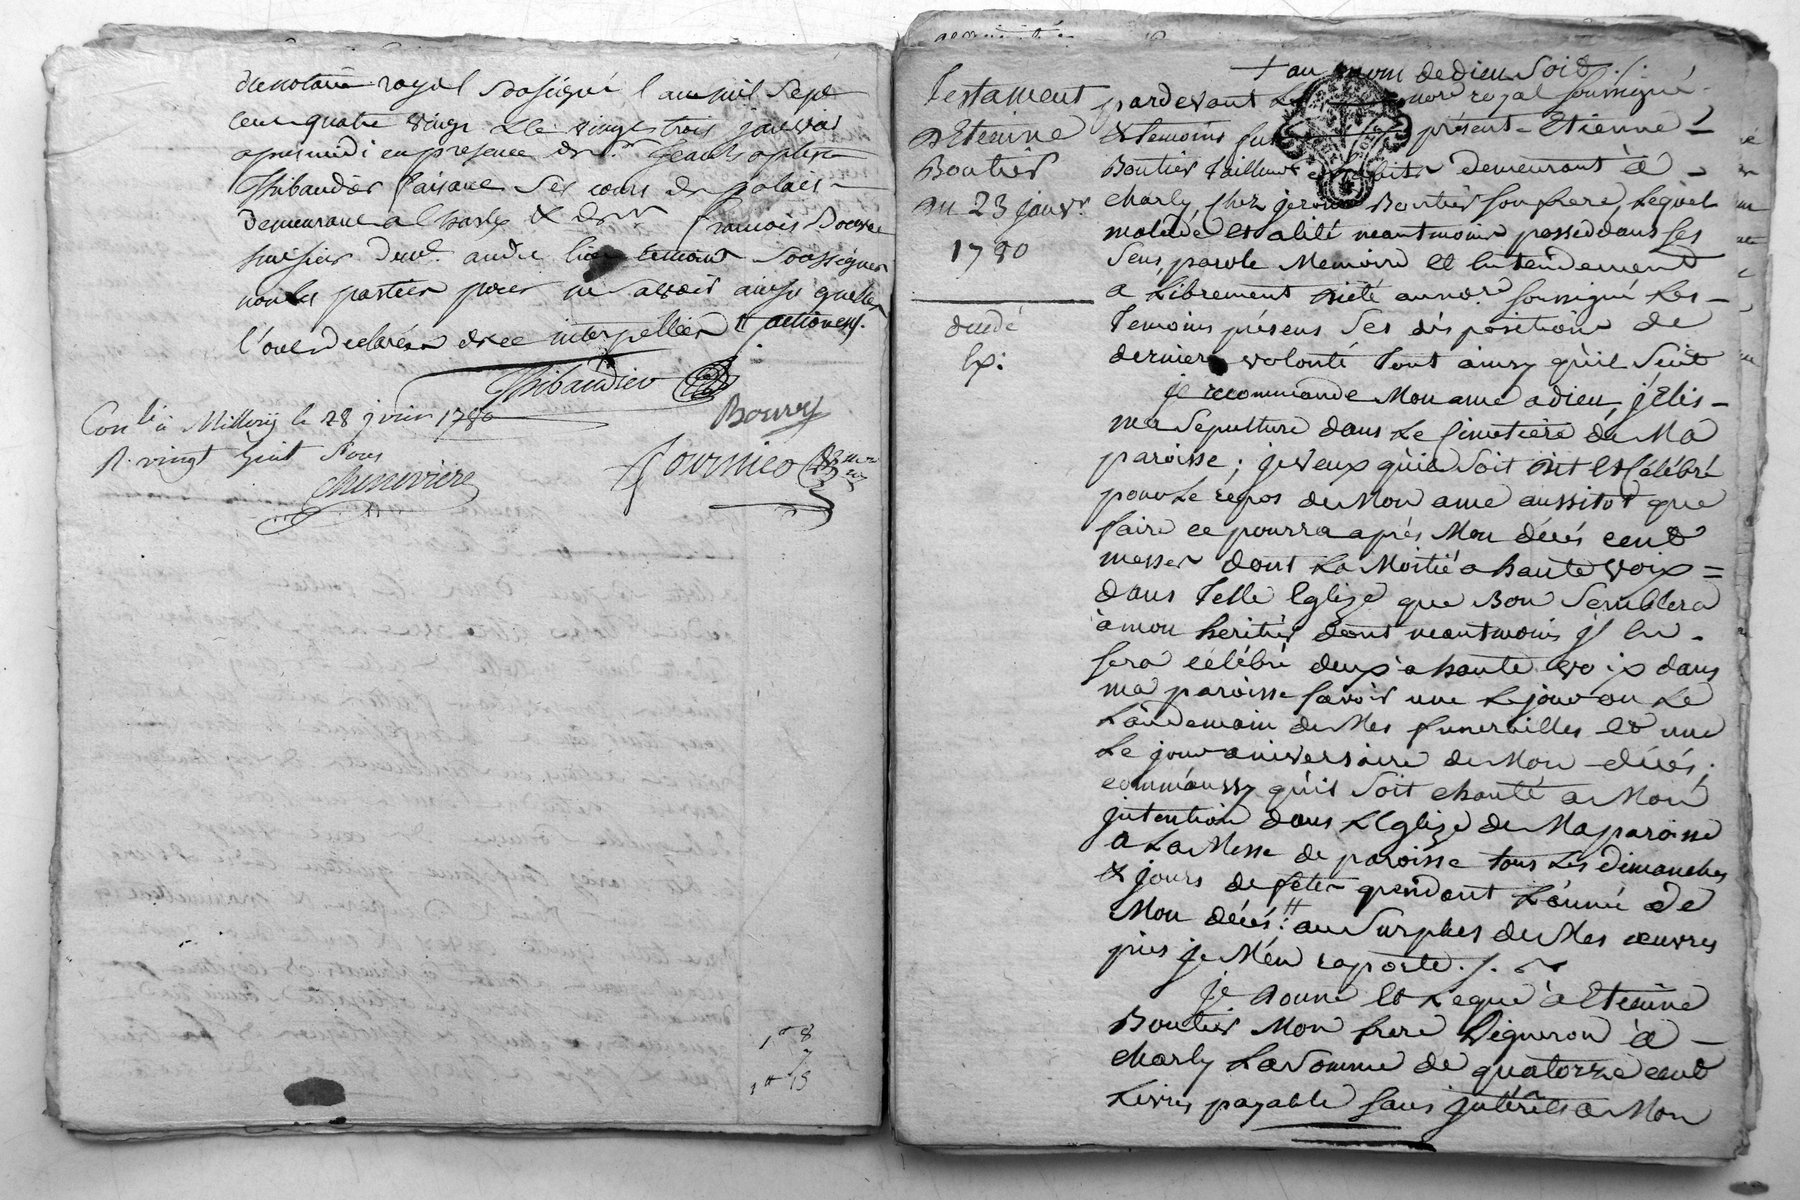 du notaire royal soussigné l'an mil sept
cent quatre vingt & le vingt trois janvier
apres midi en presence de sr. Jean Baptiste
Thibaudier faisant ses cours de palais
demeurant a Charly & de sr. francois Bourry
huissier
nonles parties pour ne savoir ainsy quelles
l'ont declaré de ce interpellées
Thibaudier
Bourry
Con.lé à Millery le 28 janvier 1780
R. vingt huit sous
Chenevière
Fournier
1 8
7
1 15
+ au nom de dieu soit ./.
Testament
d'Etienne
Boutier
du 23 janvr.
1780
expédié
pardevant Le nore. royal soussigné
& temoins fut présent Etienne
Boutier Tailleur d'habits demeurant à
charly chez jerome Boutier son frere, Lequel
malade et alité neantmoins possedant ses
sens, parole Memoire et Entendement
a Librement dicté au nore. soussigné Les
Temoins présens ses disposition de
derniere volonté tout ainsy qu'il suit
je recommande Mon ame a dieu, j'Elis
ma sepulture dans Le Cimetiere de Ma
paroisse; je veux qu'il soit dit et Célébré
pour Le repos de Mon ame aussitot que
faire ce pourra après Mon décés cent
messes dont La Moitié a haute voix =
dans Telle Eglize que Bon Semblera
à mon heritier dont neantmoins jl En
sera célébré deux a haute voix dans
ma paroisse savoir une Le jour ou Le
Landemain de Mes funerailles et une
Le jour aniversaire de Mon décés;
comm'aussy qu'il soit chanté a Mon
jntention dans L'Eglize de Ma paroisse
a La Messe de paroisse tous Les dimanches
& jours de fetes pendant L'année de
Mon décés: au surplus de Mes œuvres
pies je M'en raporte ./.
Je donne et Legue à Etienne
Boutier Mon frere Vigneron à
charly La somme de quatorze cent
Livres payable sans jntérêts a Mon